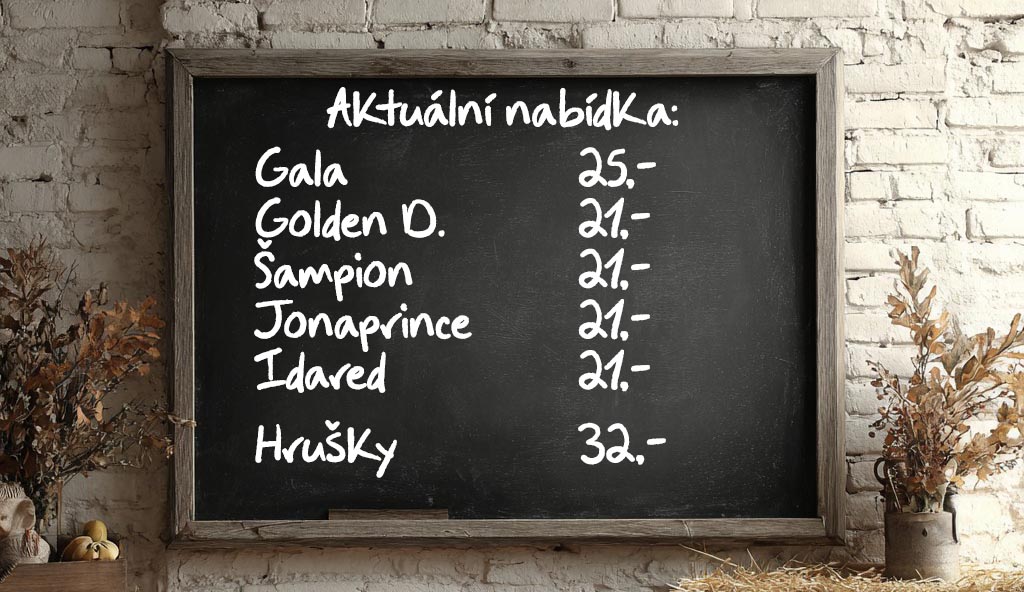 Aktuální nabídka:
Gala 25,-
Golden D. 21,-
Šampion 21,-
Jonaprince 21,-
Idared 21,-
Hrušky 32,-